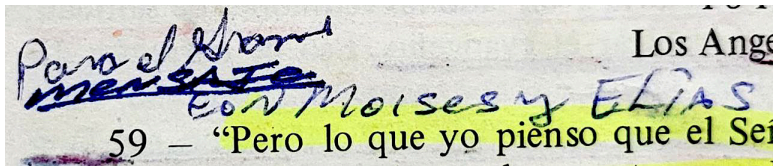 Los Ange
Para el Gran
MENSAJE
CON MOISES y ELIAS
59 – “Pero lo que yo pienso que el Señ